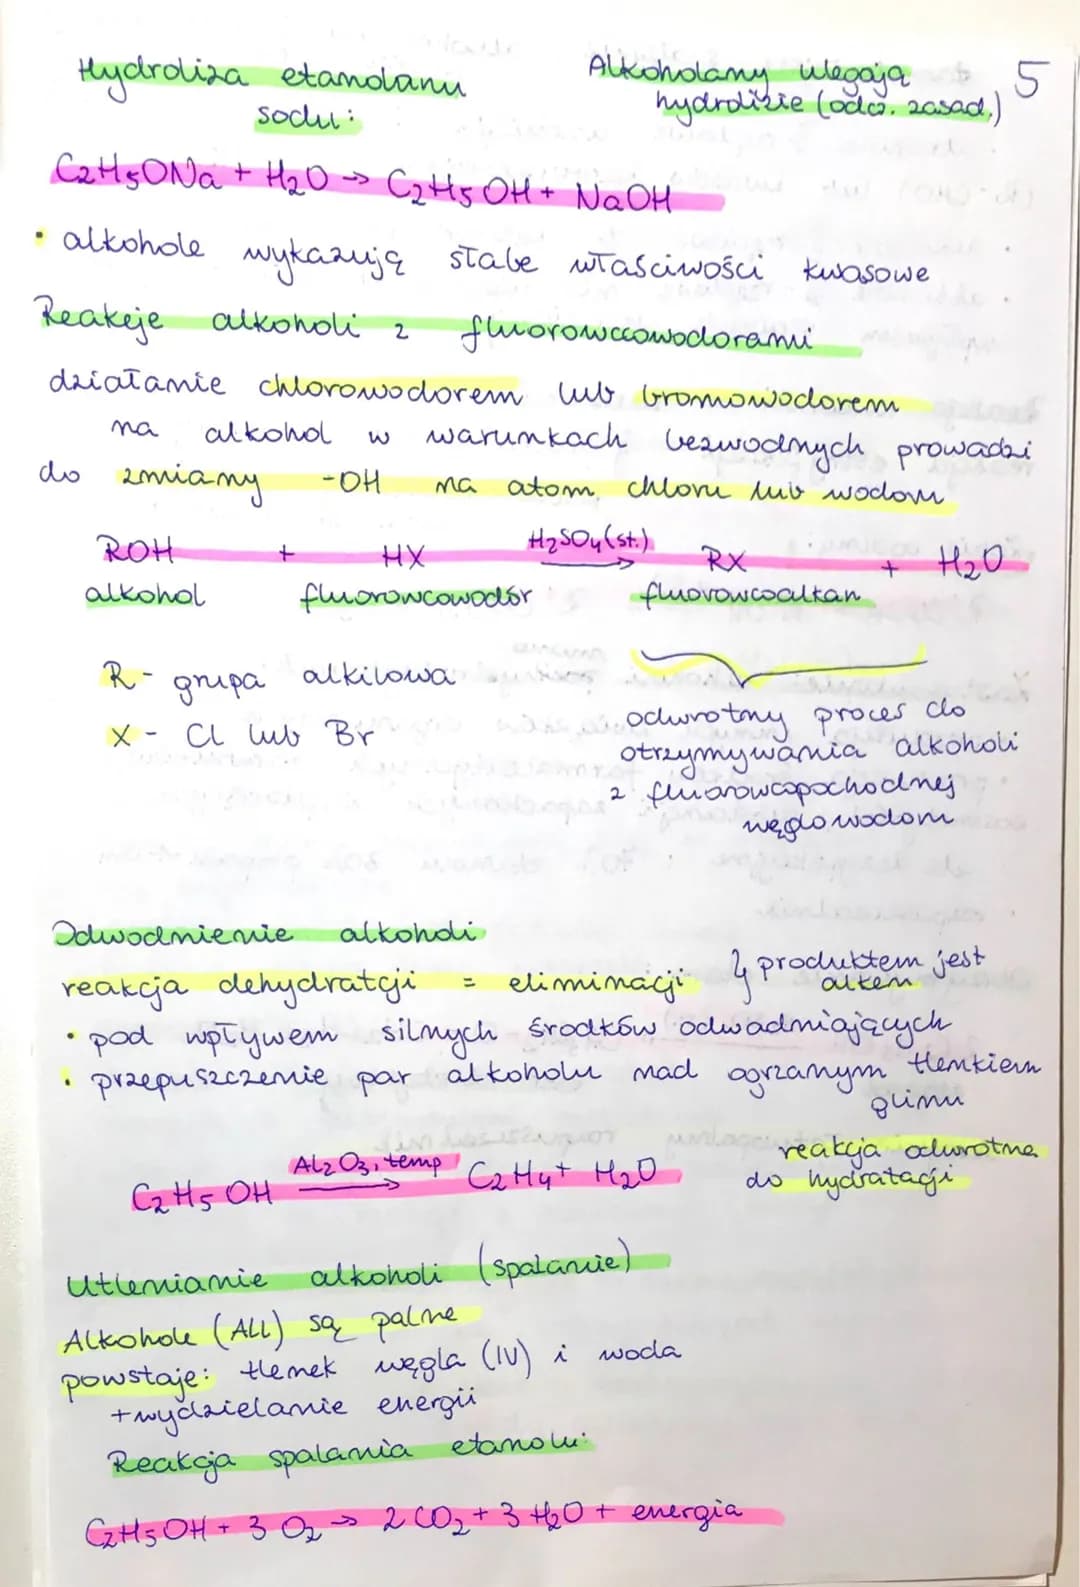 Hydroliza etanolanu
sodu:
Alkoholany ulegają
hydrolizie (odcz. zasad.)
5
C2H5ONa + H2O → C2H5OH + NaOH
• alkohole wykazują słabe właściwości kwasowe
Reakcje alkoholi z fluorowcowodorami
działanie chlorowodorem lub bromowodorem
na alkohol w warunkach bezwodnych prowadzi
do zmiany -OH na atom chloru lub wodoru
ROH + HX H2SO4(st.) → RX + H2O
alkohol fluorowcowodór fluorowcoalkan
R - grupa alkilowa
X - Cl lub Br
odwrotny proces do
otrzymywania alkoholi
z fluorowcopochodnej
węglowodoru
Odwodnienie alkoholi
reakcja dehydratcji = eliminacji } produktem jest
alken
• pod wpływem silnych środków odwadniających
• przepuszczenie par alkoholu nad ogrzanym tlenkiem
glinu
C2H5OH Al2O3, temp → C2H4 + H2O
reakcja odwrotna
do hydratacji
Utlenianie alkoholi (spalanie)
Alkohole (ALL) są palne
powstaje: tlenek węgla (IV) i woda
+wydzielanie energii
Reakcja spalania etanolu:
C2H5OH + 3 O2 → 2 CO2 + 3 H2O + energia